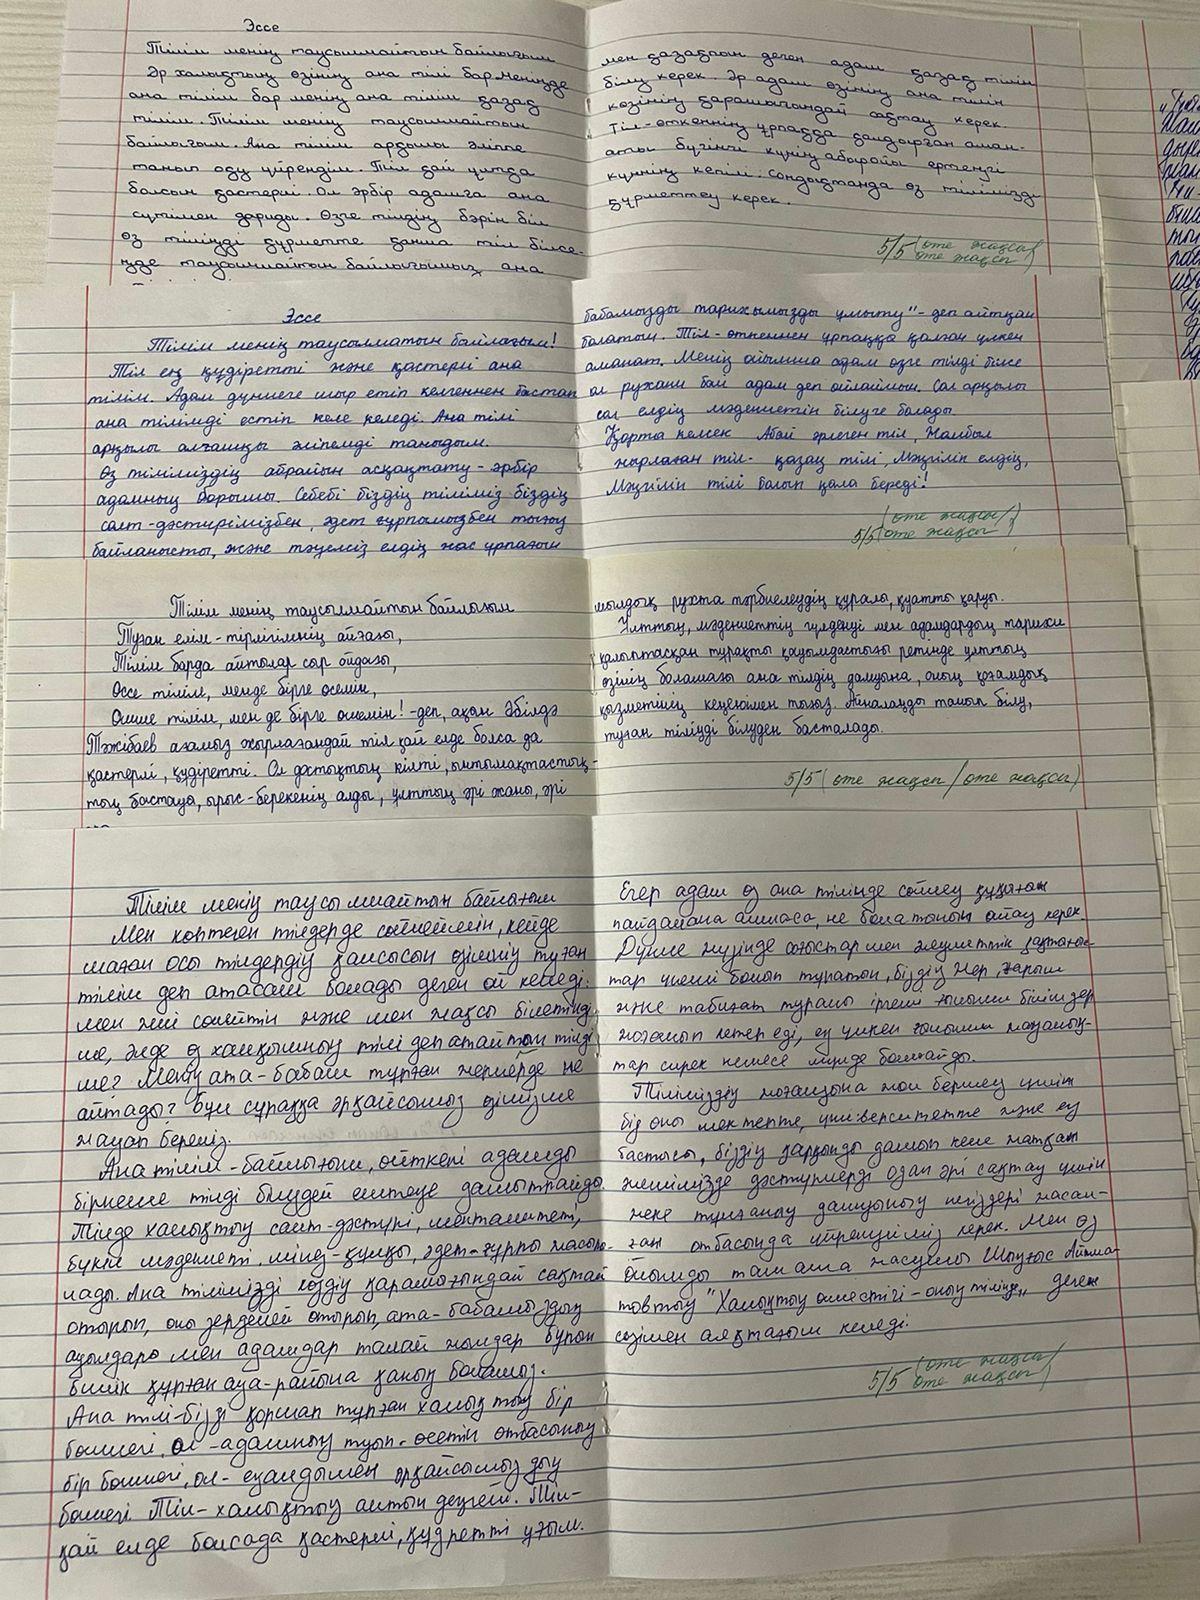 Эссе
Тілім менің таусылмайтын байлығым
Әр халықтың өзінің ана тілі бар. Менінде
ана тілім бар менің ана тілім қазақ
тілім. Тілім менің таусылмайтын
байлығым. Ана тілім арқылы әліппе
танып оқу үйрендім. Тіл қай ұлтда
болсын қастерлі. Ол әрбір адамға ана
сүтімен дариды. Өзге тілдің бәрін біл
өз тіліңді құрметте қанша тіл білсе-
ңде таусылмайтын байлығымыз ана
мен қазақпын деген адам қазақ тілін
білу керек. Әр адам өзінің ана тілін
көзінің қарашығындай сақтау керек.
Тіл-өткеннің ұрпаққа қалдырған аман-
аты бүгінгі күннің абыройы ертеңгі
күннің кепілі. Сондықтанда өз тілімізді
құрметтеу керек.
5/5 (өте жақсы/
өте жақсы)
Эссе
Тілім менің таусылматын байлығым!
Тіл ең құдіретті және қастерлі ана
тілім. Адам дүниеге шыр етіп келгеннен бастап
ана тілімді естіп келе келеді. Ана тілі
арқылы алғашқы әліпемді таныдым.
Өз тіліміздің абройын асқақтату - әрбір
адамның борышы. Себебі біздің тіліміз біздің
салт-дәстүрімізбен, әдет ғұрпымызбен тығыз
байланысты, және тәуелсіз елдің жас ұрпағын
бабамызды тарихымызды ұмыту" - деп айтқан
болатын. Тіл - өткеннен ұрпаққа қалған үлкен
аманат. Менің ойымша адам өзге тілді білсе
ол рухани бай адам деп ойлаймын. Сол арқылы
сол елдің мәдениетін білуге болады.
Қорта келсек Абай әрлеген тіл, Жамбыл
жырлаған тіл- қазақ тілі, Мәңгілік елдің,
Мәңгілік тілі болып қала береді!
5/5 (өте жақсы/
өте жақсы)
Тілім менің таусылмайтын байлығым
Туған елім - тірлігімнің айғағы,
Тілім барда айтылар сыр ойдағы,
Өссе тілім, менде бірге өсемін,
Өшше тілім, мен де бірге өшемін! -деп, ақын Әбілдә
Тәжібаев ағамыз жырлағандай тіл қай елде болса да
қастерлі, құдіретті. Ол достықтың кілті, ынтымақтастық-
тың бастауы, ырыс-берекенің алды, ұлттың әрі жаны, әрі
мылдық рухта тәрбиелеудің құралы, қуатты қаруы.
Ұлттың, мәдениеттің гүлденуі мен адамдардың тарихи
қалыптасқан тұрақты қауымдастығы ретінде ұлттың
өзінің болашағы ана тілдің дамуына, оның қоғамдық
қызметінің кеңеюімен тығыз. Айналаңды танып білу,
туған тіліңді білуден басталады.
5/5 (өте жақсы / өте жақсы)
Тілім менің таусылмайтын байлығым
Мен көптеген тілдерде сөйлеймін, кейде
маған осы тілдердің қайсысын өзімнің туған
тілім деп атасам болады деген ой келеді.
мен жиі сөйлейтін және мен жақсы білетінді
ме, әлде өз халқымның тілі деп атайтын тілді
ме? Менің ата-бабам тұрған жерлерде не
айтады? Бұл сұраққа әрқайсымыз өзімізше
жауап береміз.
Ана тілім - байлығым, өйткені адамды
бірнеше тілді білудей ештеңе дамытпайды.
Тілде халықтың салт-дәстүрі, менталитеті,
бүкіл мәдениеті, мінез-құлқы, әдет-ғұрпы жасыры-
лады. Ана тілімізді көздің қарашығындай сақтай
отырып, оны зерделей отырып, ата-бабамыздың
ауылдары мен адамдар талай жылдар бұрын
билік құрған ауа-райына қанық боламыз.
Ана тілі-бізді қоршап тұрған халықтың бір
бөлшегі, ол -адамның туып-өсетін отбасының
бір бөлшегі, ол- әрқайсымыздың
бөлшегі. Тіл - халықтың алтын деңгейі. Тіл-
қай елде болсада қастерлі, құдретті ұғым.
Егер адам өз ана тілінде сөйлеу құқығын
пайдалана алмаса, не болатынын ойлау керек.
Дүние жүзінде соғыстар мен әлеуметтік қақтығыс-
тар үнемі болып тұратын, біздің Жер, Ғарыш
және табиғат туралы іргелі ғылыми білімдер
жоғалып кетер еді, ең үлкен ғылыми жаңалық-
тар сирек немесе мүлде болмайды.
Тіліміздің жоғалуына жол бермеу үшін
біз оны мектепте, университетте және ең
бастысы, біздің қарқынды дамып келе жатқан
әлемімізде дәстүрлерді одан әрі сақтау үшін
жеке тұлғаның дамуының негіздері жасал-
ған отбасында үйренуіміз керек. Мен өз
ойымды тамаша жазушы Шыңғыс Айтма-
товтың "Халықтың өлместігі - оның тілінде" деген
сөзімен аяқтағым келеді.
5/5 (өте жақсы/
өте жақсы)